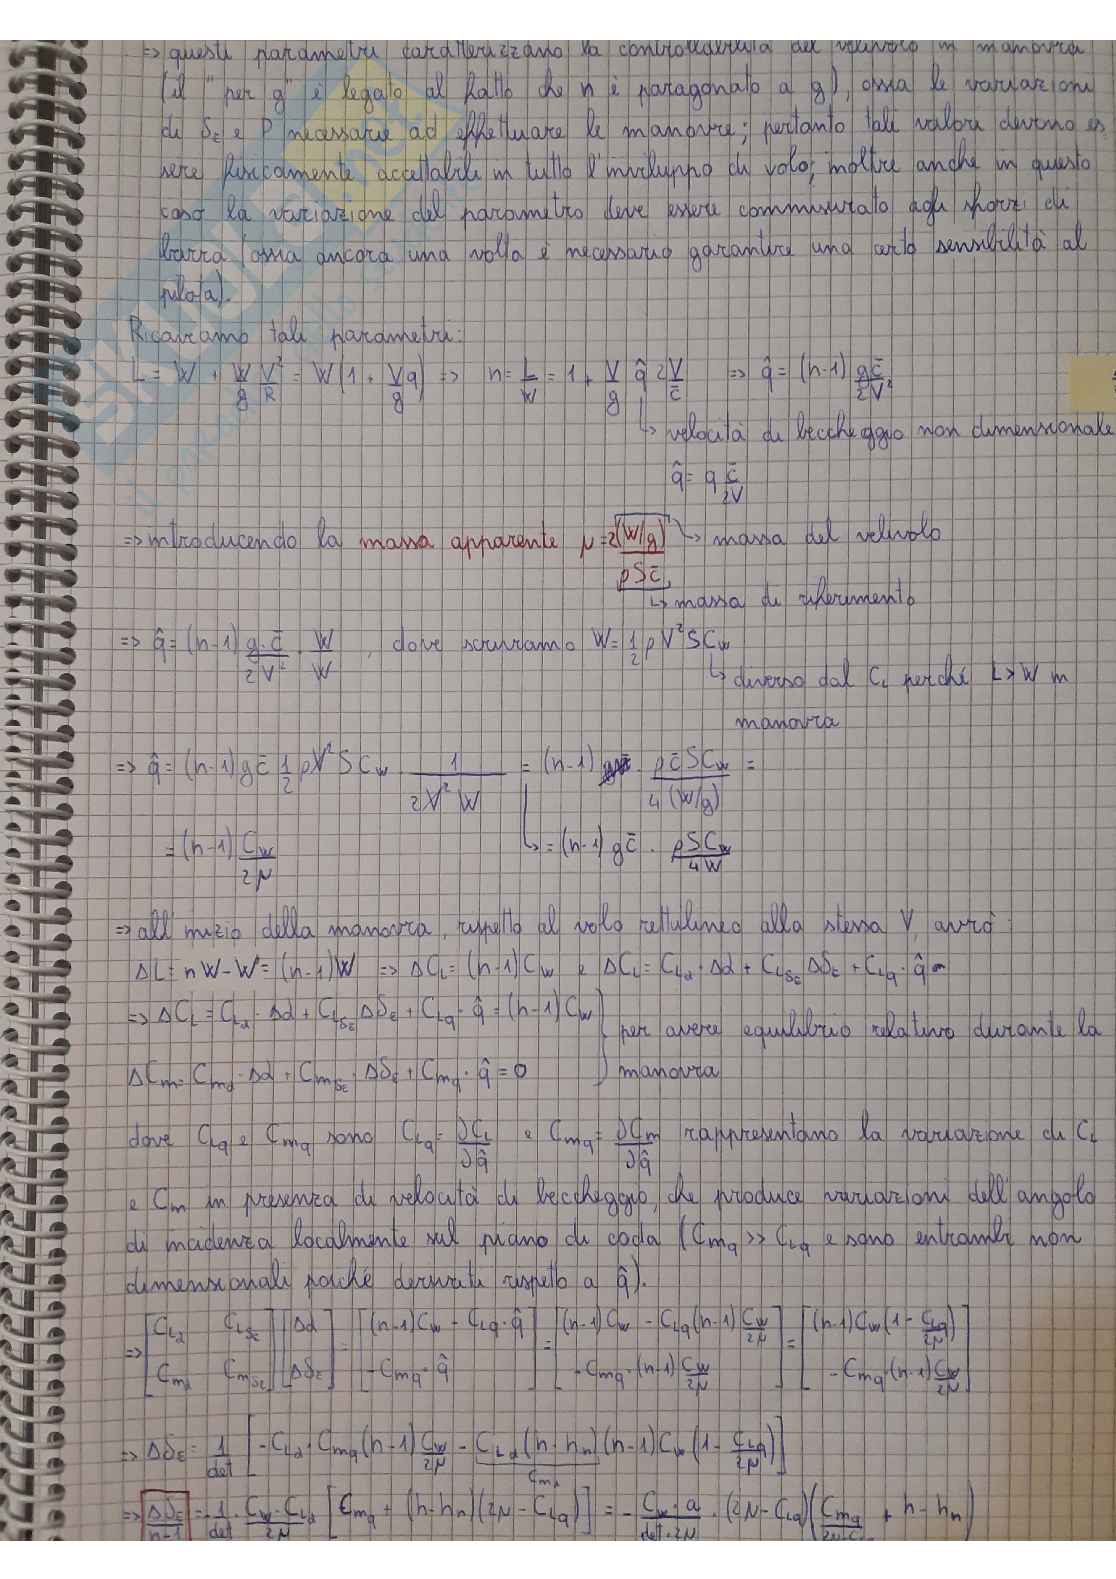 => questi parametri caratterizzano la controllabilità del velivolo in manovra
(il "per g" è legato al fatto che n è paragonato a g), ossia le variazioni
di δE e P necessarie ad effettuare le manovre; pertanto tali valori devono es
sere fisicamente accettabili in tutto l'inviluppo di volo; inoltre anche in questo
caso la variazione del parametro deve essere commisurato agli sforzi di
barra (ossia ancora una volta è necessario garantire una certa sensibilità al
pilota).
Ricaviamo tali parametri:
L = W + W/g V²/R = W(1 + Vq/g) => n = L/W = 1 + V/g q̂ 2V/c̄ => q̂ = (n-1) gc̄/2V²
↳ velocità di beccheggio non dimensionale
q̂ = q c̄/2V
=> introducendo la massa apparente μ = 2(W/g)/ρSc̄ ↳ massa del velivolo
↳ massa di riferimento
=> q̂ = (n-1) g·c̄/2V² · W/W , dove scriviamo W = 1/2 ρV²SCw
↳ diverso dal CL perché L>W in
manovra
=> q̂ = (n-1) gc̄ 1/2 ρV²SCw · 1/2V²W = (n-1) · ρc̄SCw/4(W/g) =
= (n-1) Cw/2μ ↳ = (n-1) gc̄ · ρSCw/4W
=> all'inizio della manovra, rispetto al volo rettilineo alla stessa V, avrò:
ΔL = nW-W = (n-1)W => ΔCL = (n-1)Cw e ΔCL = CLα·Δα + CLδE ΔδE + CLq·q̂
=> ΔCL = CLα·Δα + CLδE ΔδE + CLq·q̂ = (n-1)Cw } per avere equilibrio relativo durante la
ΔCm = Cmα·Δα + CmδE·ΔδE + Cmq·q̂ = 0 } manovra
dove CLq e Cmq sono CLq = ∂CL/∂q̂ e Cmq = ∂Cm/∂q̂ rappresentano la variazione di CL
e Cm in presenza di velocità di beccheggio, che produce variazioni dell'angolo
di incidenza localmente sul piano di coda (Cmq >> CLq e sono entrambi non
dimensionali poiché derivate rispetto a q̂).
=> [CLα CLδE; Cmα CmδE] [Δα; ΔδE] = [(n-1)Cw - CLq·q̂; -Cmq·q̂] = [(n-1)Cw - CLq(n-1)Cw/2μ; -Cmq·(n-1)Cw/2μ] = [(n-1)Cw(1 - CLq/2μ); -Cmq·(n-1)Cw/2μ]
=> ΔδE = 1/det [-CLα·Cmq(n-1)Cw/2μ - CLα(h-hn)(n-1)Cw(1 - CLq/2μ)]
Cmα
=> ΔδE/n-1 = -1/det · Cw·CLα/2μ [Cmq + (h-hn)(2μ - CLq)] = - Cw·a/det·2μ · (2μ-CLq)(Cmq/2μ-CLq + h-hn)